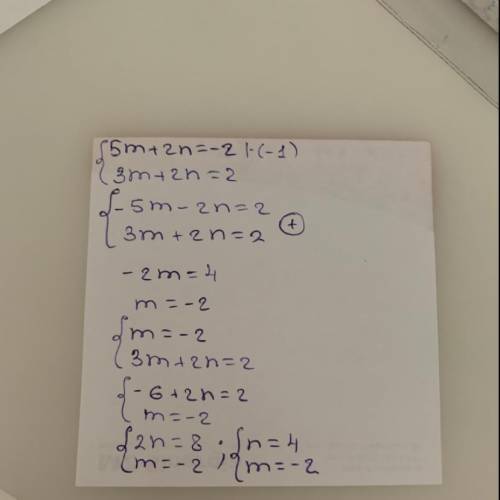 {5m+2n=-2 |·(-1)
3m+2n=2
{-5m-2n=2
3m+2n=2 (+)
-2m=4
m=-2
{m=-2
3m+2n=2
{-6+2n=2
m=-2
{2n=8 ; {n=4
m=-2 m=-2